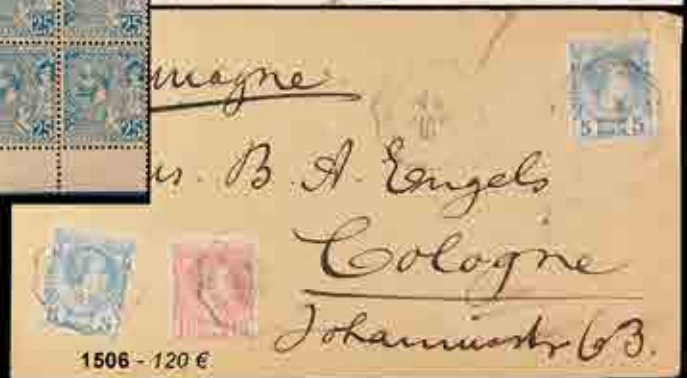 25
25 25
magne
5 5
rs. B. A. Engels
Cologne
Johannisstr 63.
1506 - 120 €